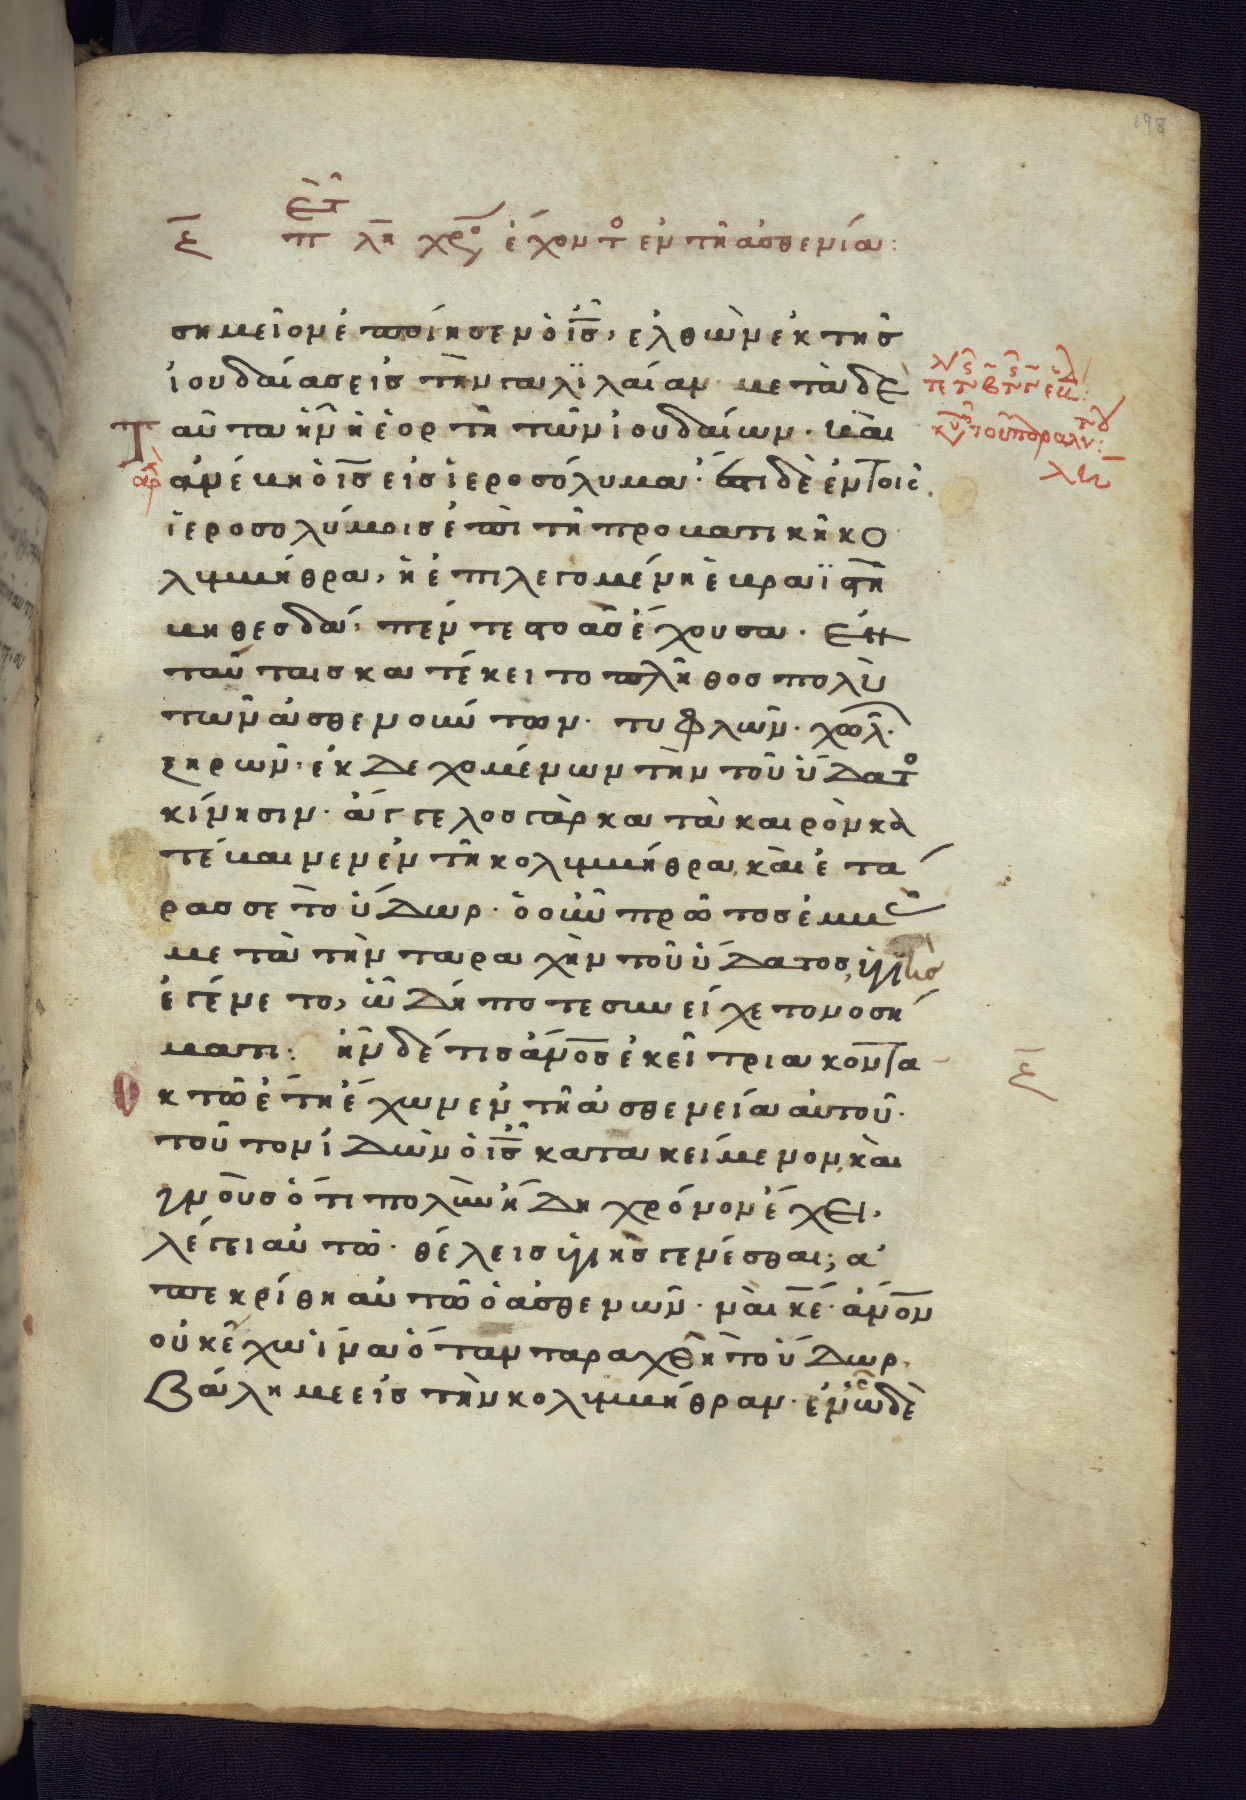 198
ζ π λη χρο ἔχοντο ἐν τῆ ἀσθενία:
σημεῖον ἐποίησεν ὁ ἰς, ἐλθὼν ἐκ τῆς
ἰουδαίας εἰς τὴν γαλιλαίαν μετὰ δὲ
ταῦτα ἦν ἡ ἑορτὴ τῶν ἰουδαίων. καὶ
ἀνέβη ὁ ις εἰς ἱεροσόλυμα. ἔστι δὲ ἐν τοῖς
ἱεροσολύμοις ἐπὶ τῆ προβατικῆ κο
λυμβήθρα, ἡ ἐπιλεγομένη ἑβραϊστὴ
βηθεσδά, πέντε στοὰς ἔχουσα. ἐν
ταύταις κατέκειτο πλῆθος πολὺ
τῶν ἀσθενούντων. τυφλῶν. χωλ.
ξηρῶν. ἐκδεχομένων τὴν τοῦ ὕδατο
κίνησιν. ἄγγελος γὰρ κατὰ καιρὸν κα
τέβαινεν ἐν τῆ κολυμβήθρα, καὶ ἐτά
ρασσε τὸ ὕδωρ. ὁ οὖν πρῶτος ἐμβὰς
μετὰ τὴν ταραχὴν τοῦ ὕδατος, ὑγιὴς
ἐγένετο, ὧ δήποτε συνείχετο νοσή
ματι: ἦν δέ τις ἀνος ἐκεῖ τριακοντα
κτῶ ἔτη ἔχων ἐν τῆ ἀσθενεία αὐτοῦ.
τοῦτον ἰδὼν ὁ ις κατακείμενον, καὶ
γνοὺς ὅτι πολὺν ἤδη χρόνον ἔχει.
λέγει αὐτῶ. θέλεις ὑγιὴς γενέσθαι; ἀ
πεκρίθη αὐτῶ ὁ ἀσθενῶν. ναὶ κε. ἀνον
οὐκ ἔχω ἵνα ὅταν παραχθῆ τὸ ὕδωρ.
βάλη με εἰς τὴν κολυμβήθραν. ἐν ὧ δὲ